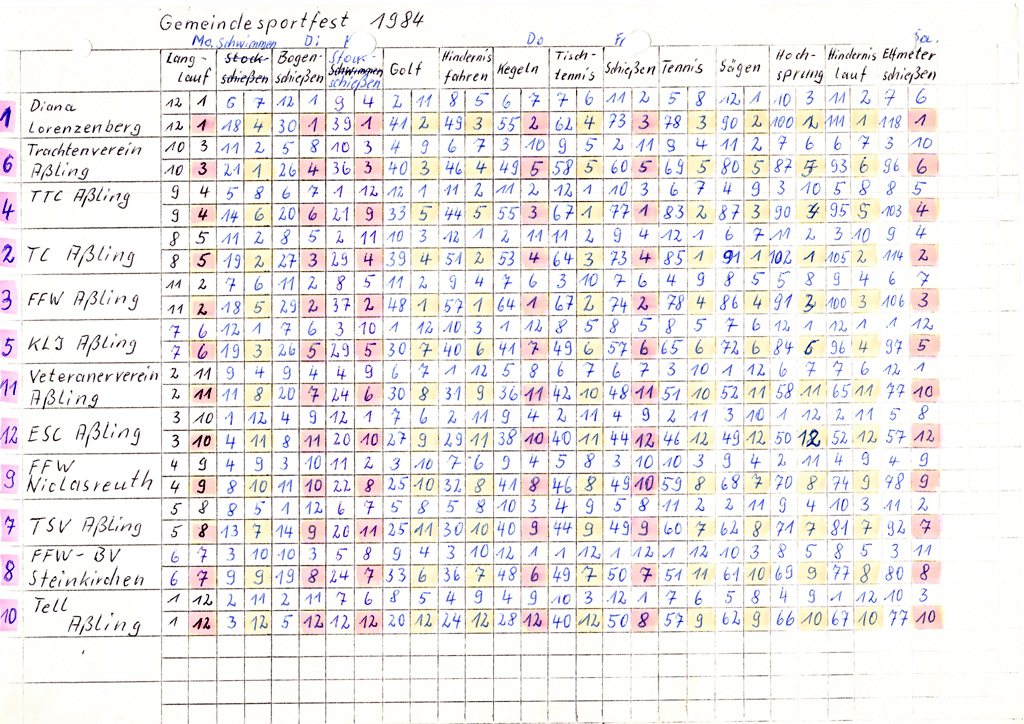 Gemeindesportfest 1984
Mo. Schwimmen Di Do Fr Sa.
Lang- Stock- Bogen- Stock- Hindernis Tisch- Hoch- Hindernis Elfmeter
lauf schießen schießen Schwimmen schießen Golf fahren Kegeln tennis Schießen Tennis Sägen sprung lauf schießen
Diana 12 1 6 7 12 1 9 4 2 11 8 5 6 7 7 6 11 2 5 8 12 1 10 3 11 2 7 6
1 Lorenzenberg 12 1 18 4 30 1 39 1 41 2 49 3 55 2 62 4 73 3 78 3 90 2 100 2 111 1 118 1
Trachtenverein 10 3 11 2 5 8 10 3 4 9 6 7 3 10 9 5 2 11 9 4 11 2 7 6 6 7 3 10
6 Aßling 10 3 21 1 26 4 36 3 40 3 46 4 49 5 58 5 60 5 69 5 80 5 87 5 93 6 96 6
TTC Aßling 9 4 5 8 6 7 1 12 12 1 11 2 11 2 12 1 10 3 6 7 4 9 3 10 5 8 8 5
4 9 4 14 6 20 6 21 9 33 5 44 5 55 3 67 1 77 1 83 2 87 3 90 4 95 5 103 4
8 5 11 2 8 5 2 11 10 3 12 1 2 11 11 2 9 4 12 1 6 7 11 2 3 10 9 4
2 TC Aßling 8 5 19 2 27 3 29 4 39 4 51 2 53 4 64 3 73 4 85 1 91 1 102 1 105 2 114 2
11 2 7 6 11 2 8 5 11 2 9 4 7 6 3 10 7 6 4 9 8 5 5 8 9 4 6 7
3 FFW Aßling 11 2 18 5 29 2 37 2 48 1 57 1 64 1 67 2 74 2 78 4 86 4 91 3 100 3 106 3
7 6 12 1 7 6 3 10 1 12 10 3 1 12 8 5 8 5 8 5 7 6 12 1 12 1 1 12
5 KLJ Aßling 7 6 19 3 26 5 29 5 30 7 40 6 41 7 49 6 57 6 65 6 72 6 84 6 96 4 97 5
Veteranerverein 2 11 9 4 9 4 4 9 6 7 1 12 5 8 6 7 6 7 3 10 1 12 6 7 7 6 12 1
11 Aßling 2 11 11 8 20 7 24 6 30 8 31 9 36 11 42 10 48 11 51 10 52 11 58 11 65 11 77 10
3 10 1 12 4 9 12 1 7 6 2 11 9 4 2 11 4 9 2 11 3 10 1 12 2 11 5 8
12 ESC Aßling 3 10 4 11 8 11 20 10 27 9 29 11 38 10 40 11 44 12 46 12 49 12 50 12 52 12 57 12
FFW 4 9 4 9 3 10 11 2 3 10 7 6 9 4 5 8 3 10 10 3 9 4 2 11 4 9 4 9
9 Niclasreuth 4 9 8 10 11 10 22 8 25 10 32 8 41 8 46 8 49 10 59 8 68 7 70 8 74 9 78 9
5 8 8 5 1 12 6 7 5 8 5 8 10 3 4 9 5 8 11 2 2 11 9 4 10 3 11 2
7 TSV Aßling 5 8 13 7 14 9 20 11 25 11 30 10 40 9 44 9 49 9 60 7 62 8 71 7 81 7 92 7
FFW-BV 6 7 3 10 10 3 5 8 9 4 3 10 12 1 1 12 1 12 1 12 10 3 8 5 8 5 3 11
8 Steinkirchen 6 7 9 9 19 8 24 7 33 6 36 7 48 6 49 7 50 7 51 11 61 10 69 9 77 8 80 8
Tell 1 12 2 11 2 11 7 6 8 5 4 9 4 9 10 3 12 1 7 6 5 8 4 9 1 12 10 3
10 Aßling 1 12 3 12 5 12 12 12 20 12 24 12 28 12 40 12 50 8 57 9 62 9 66 10 67 10 77 10